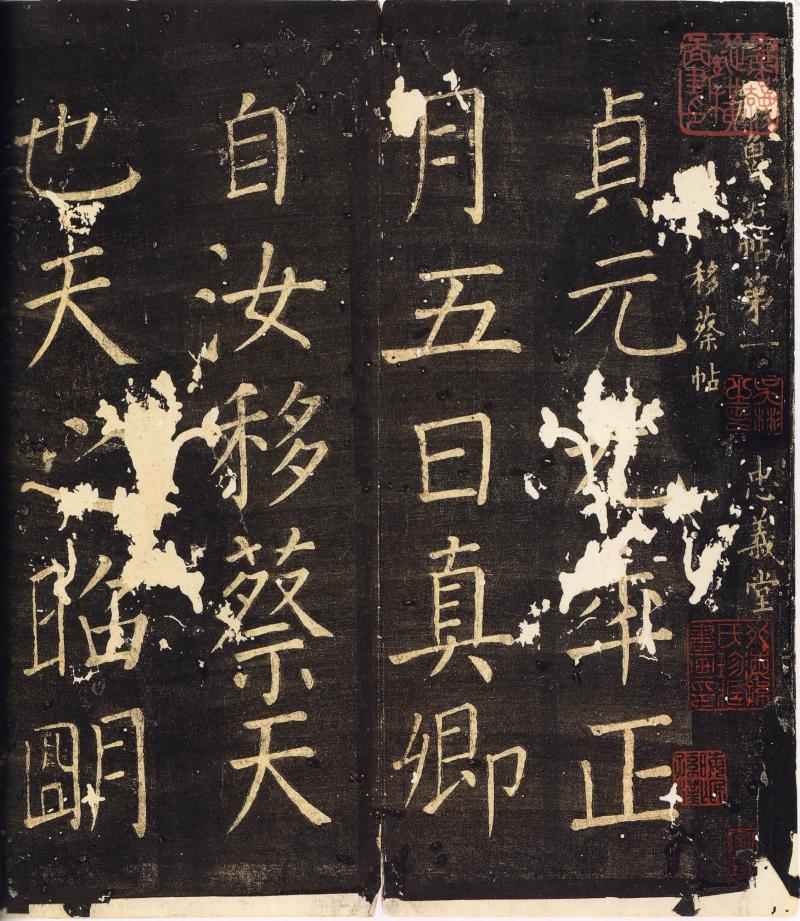 魯公帖第一 忠義堂
移蔡帖
貞元年正
月五日真卿
自汝移蔡天
也天之昭明